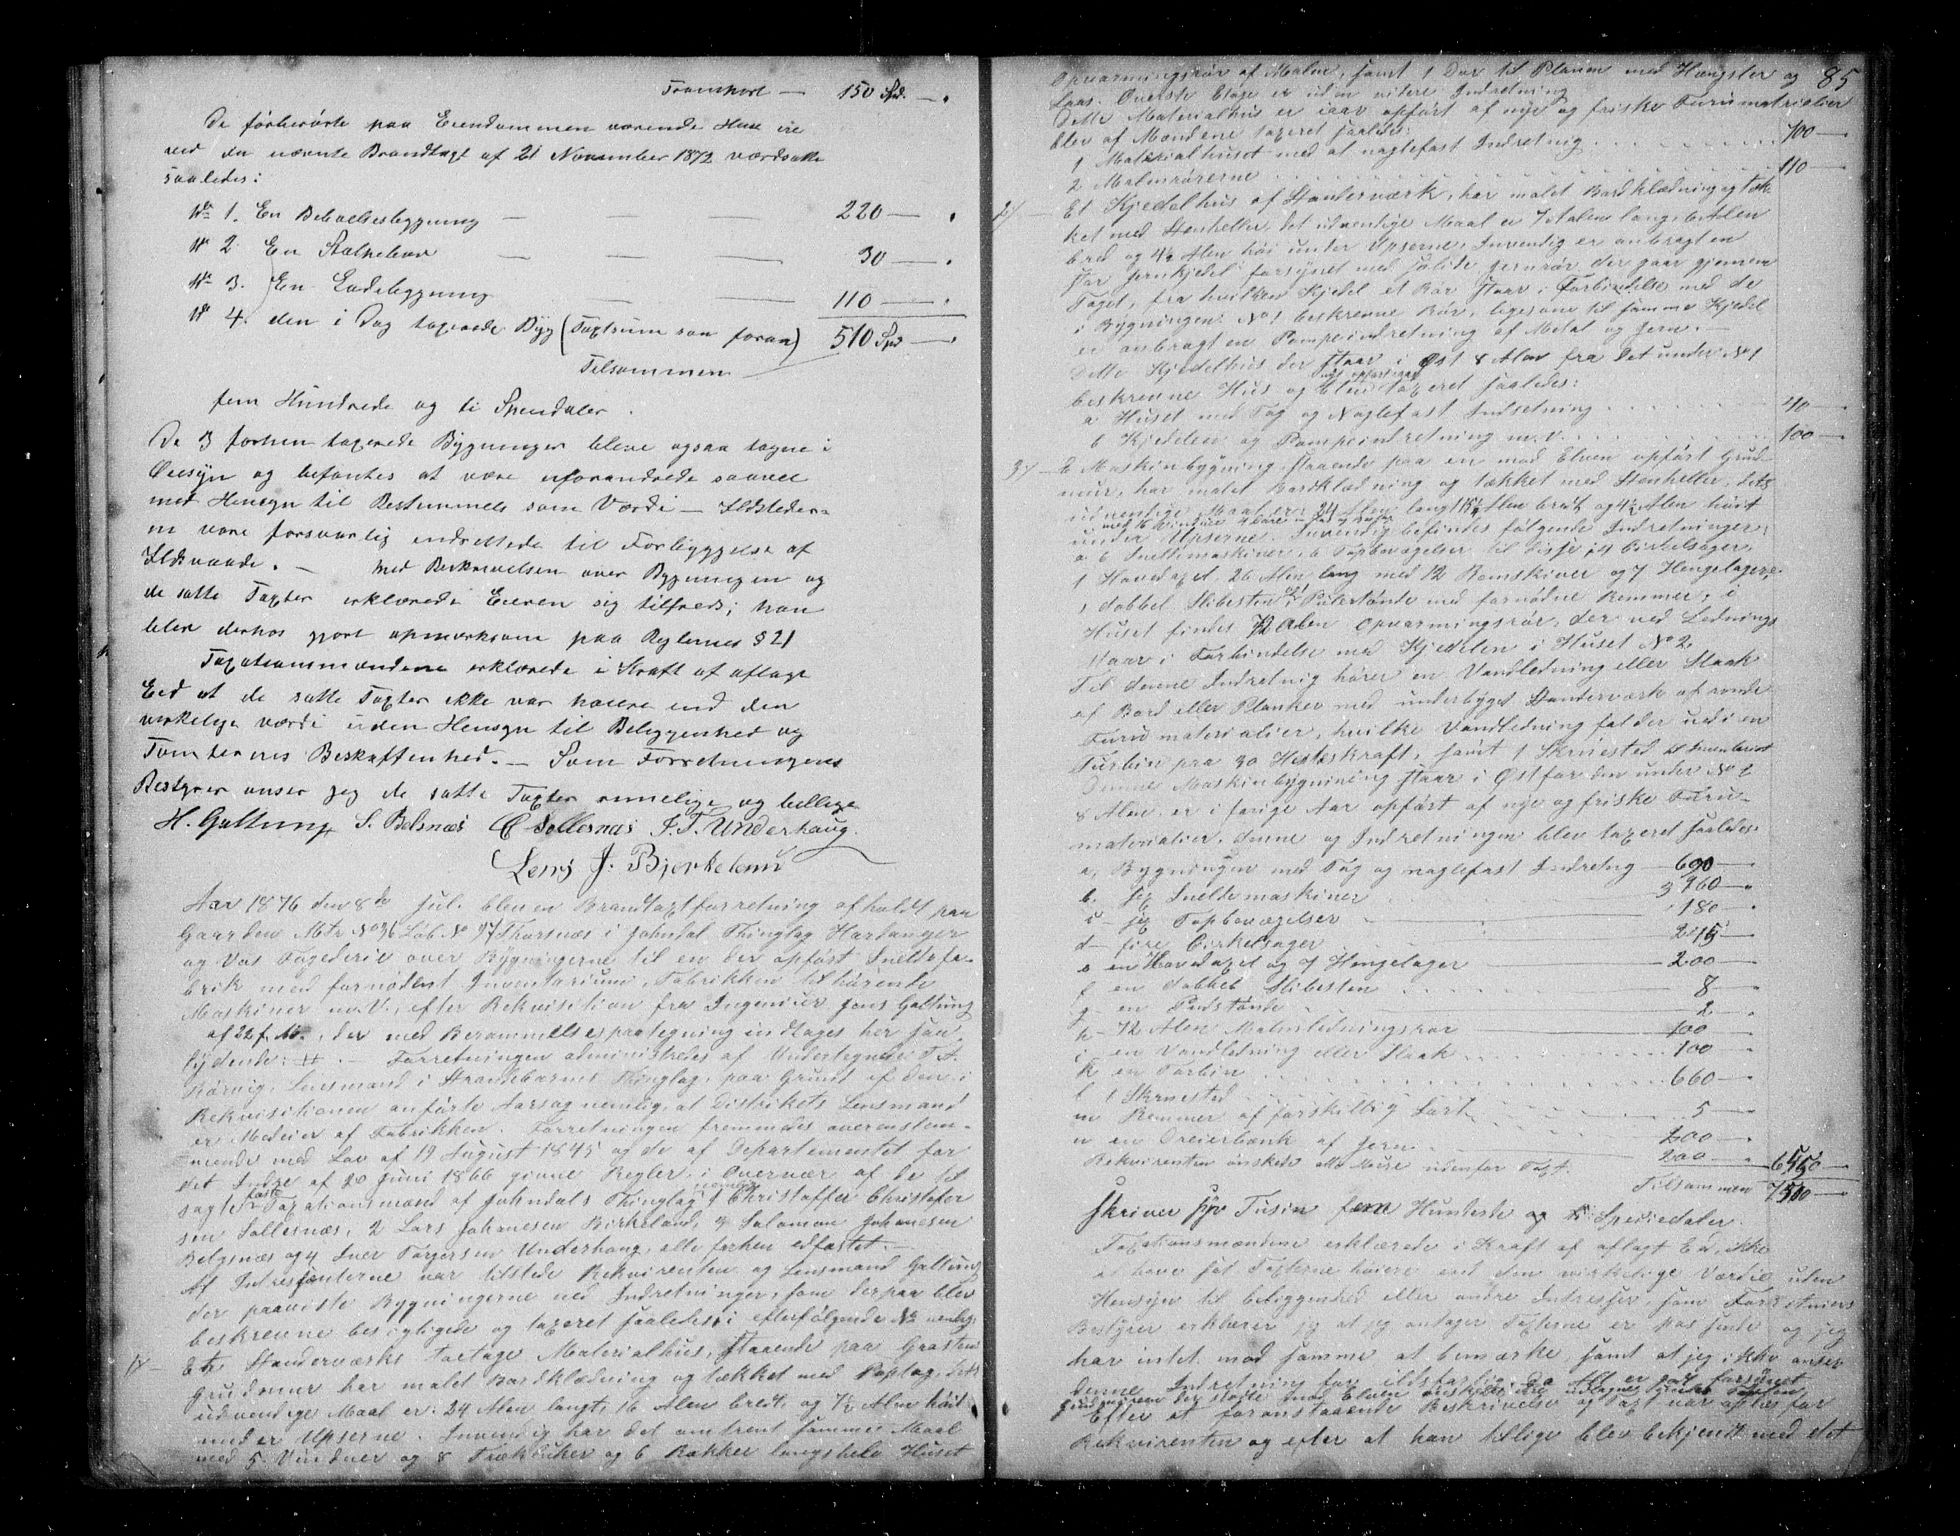 Transport — 150 Spd. — .
De førberørte paa Eiendommen værende Huse ere
ved den nævnte Brandtaxt af 21 November 1872 værdsatte
saaledes:
No 1. En Beboelsesbygning — — — 220 — .
No 2 En Stolpebod — — — 30 — .
No 3. En Ladebygning — — 110 — .
No 4. den i Dag taxerede Byg (Taxtsum som foran) 510 Spd — .
Tilsammen
fem Hundrede og ti Speciedaler.
De 3 forhen taxerede Bygninger bleve ogsaa tagne i
Øiesyn og befantes at være uforandrede saavel
med Hensyn til Bestemmelse som Værdi — Ildsteder-
ne vare forsvarlig indrettede til Forbyggelse af
Ildsvaade. — Med Beskrivelsen over Bygningen og
de satte Taxter erklærede Eieren sig tilfreds; han
blev derhos gjort opmærksom paa Reglernes § 21
Taxationsmændene erklærede i Kraft af aflagt
Eed at de satte Taxter ikke var høiere end den
virkelige værdi uden Hensyn til Beliggenhed og
Tomternes Beskaffenhed. — Som Forretningens
Bestyrer anser jeg de satte Taxter rimelige og billige
H. Galtung S. Belsnæs C Sollesnæs I. T. Underhaug.
Lars J. Bjerkeland
Aar 1876 den 8de Juli blev en Brandtaxtforretning afholdt paa
Gaarden Mtr No 36 Løb No 97 Thorsnæs i Jondal Thinglag Hardanger
og Vos Fogederie over Bygningerne til en der opført Snellefa-
brik med fornødent Inventarium, Fabrikken tilhørende
Maskiner m.V., efter Rekvisition fra Ingeniør Jens Galtung
af 22 f. M., der med Berammelsespaategning indtages her saa
lydende: # . — Forretningen administredes af Undertegnede T. S.
Børvig, Lensmand i Strandebarms Thinglag, paa Grund af den i
Rekvisitionen anførte Aarsag nemlig, at Distriktets Lensmand
er Medeier af Fabrikken. Forretningen fremmedes overenstem-
mende med Lov af 19 August 1845 og de af Departementet for
det Indre af 20 Juni 1866 givne Regler, i Overvær af de til
sagte faste Taxationsmænd af Johndals Thinglag nemlig 1 Christoffer Christofer
sen Sollesnæs, 2 Lars Johanesen Birkeland, 3 Salomon Johanesen
Belsnæs og 4 Iver Torgersen Underhaug, alle forhen edfæstet. —
Af Intresenterne var tilstede Rekvirenten og Lensmand Galtung
der paaviste Bygningerne med Indretninger, som derpaa blev
beskrevne besigtigede og taxeret saaledes i efterfølgende No nemlig:
1) Et Standerværks toetages Materialhus, staaende paa Graasten
Grundmur har malet Bordklædning og tækket med Paptag, dets
udvendige Maal er: 24 Alen langt, 16 Alen bredt og 7½ Alen høit
under Upserne. Invendig har det omtrent samme Maal
med 5 Vinduer og 8 Trækluker og 6 Bukker langshele Huset
85
Opvarmingsrør af Malm, samt 1 Dør til Planen med Hængsler og
Laas. Øverste Etage er uden videre Indretning
Dette Materialhus er iaar opført af nye og friske Furumaterialier
blev af Mændene taxeret saaledes:
1 Materialhuset med at naglefast Indretnig . . . . . . 700 —
2 Malmrørerne . . . . . . 110 —
2) Et Kjedelhus af Standerværk, har malet Bordklædning og tæk
ket med Stenheller, det udvendige Maal er 7 Alen lang, 6 Alen
bred og 4½ Alen høi under Upserne. Invendig er anbragt en
stor Jernkjedel forsynet med solide Jernrør der gaar gjennem
Taget, fra hvilken Kjedel et Rør staar i Forbindelse med de
i Bygningen No 1 beskrevne Rør, ligesom til samme Kjedel
er anbragt en Pompeindretning af Metal og Jern. —
Dette Kjedelhus der staar i Øst 8 Alen fra det under No 1
beskrevne Hus og blev taxeret saaledes:
a Huset med Tag og Naglefast Indretning . . . . . 40 —
b Kjedelen og Pompeindretning m.v. . . . . . 100 —
3) E Maskinbygning staaende paa en mod Elven opført Grund-
mur, har malet Bordklædning og tækket med Stenheller, dets
udvendige Maal er: 24 Alen langt 15¼ Alen bredt og 4½ Alen høit
under Upserne. Invendig befindes følgende Indretninger:
a 6 Snellemaskiner, 6 Tapbevægelser til disse, 4 Cirkelsager,
1 Hovedaxel, 26 Alen lang med 12 Remskiver og 7 Hengelagere,
1 dobbel Slibesten og 1 Pudsetønde med fornødne Remmer, i
Huset findes 72 Alen Opvarmingsrør, der ved Lednings
staar i Forbindelse med Kjedelen i Huset No 2
Til denne Indretnig hører en Vandledning eller Stok
af Bord eller Planker med underbyget Standerværk af runde
Furu materialier, hvilke Vandledning falder ned i en
Turbin paa 30 Hesteskraft, samt 1 Skruested
Denne Maskinbygning staar i Øst for den under No 2
8 Alen. er i forige Aar opført af nye og friske Furu-
materialier, denne og Indretningen blev taxeret saaledes
a, Bygningen med Tag og naglefast Indretng — 690 —
b. Sex Snellemaskiner . — 3960 — .
c — sex Tapbevægelser — 180 — .
d — fire Cirkelsager — 215 —
e en Hovedaxel og 7 Hengelager — 200 — .
f en dobbel Slibesten . . . . . 8 — .
g — en Pudstønde 2 — .
h — 72 Alen Malmledningsrør — 100 — .
i — en Vandledning eller Stok . . . . 100 — .
k en Turbin . . . . . 660 — .
l 1 Skruested . . . . . 5 — .
m Remmer af forskillig Sort . . . 200 — .
n en Dreierbænk af Jern . — 200 — . 6550 —
Rekvirenten ønskede Mure udenfor Taxt. Tilsammen 7510 —
skriver syv Tusin fem Hundrede og ti Speciedaler.
Taxationsmændene erklærede i Kraft af aflagt Ed, ikke
at have sat Taxterne høiere end den virkelige Værdie uden
Hensyn til beliggenhed eller andre Intresser, som Forretnings
Bestyrer erklærer jeg at jeg antager Taxterne er passende og jeg
har intet mod samme at bemærke, samt at jeg ikke anser
denne Indretning for ildsfarlig, da Alt er vel forsynet
Efter at foranstaaende Beskrivelse og Taxt var oplæst for
Rekvirenten og efter at han tillige blev bekjendt med det